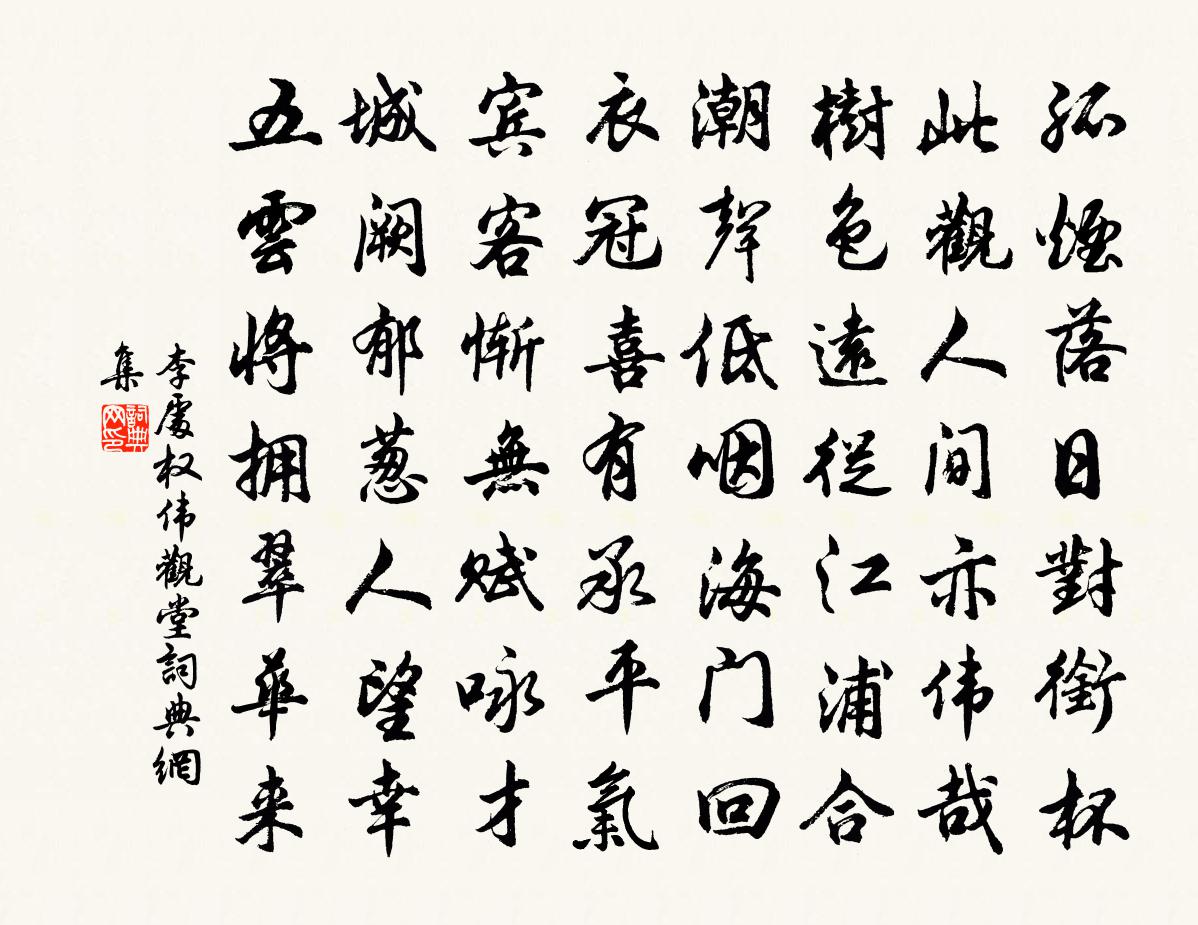 孤煙落日對銜杯
此觀人间亦伟哉
樹色遠從江浦合
潮聲低咽海门回
衣冠喜有承平氣
宾客惭無赋咏才
城阙郁葱人望幸
五雲将拥翠華来
李處权伟觀堂詞典網
集
詞典网印